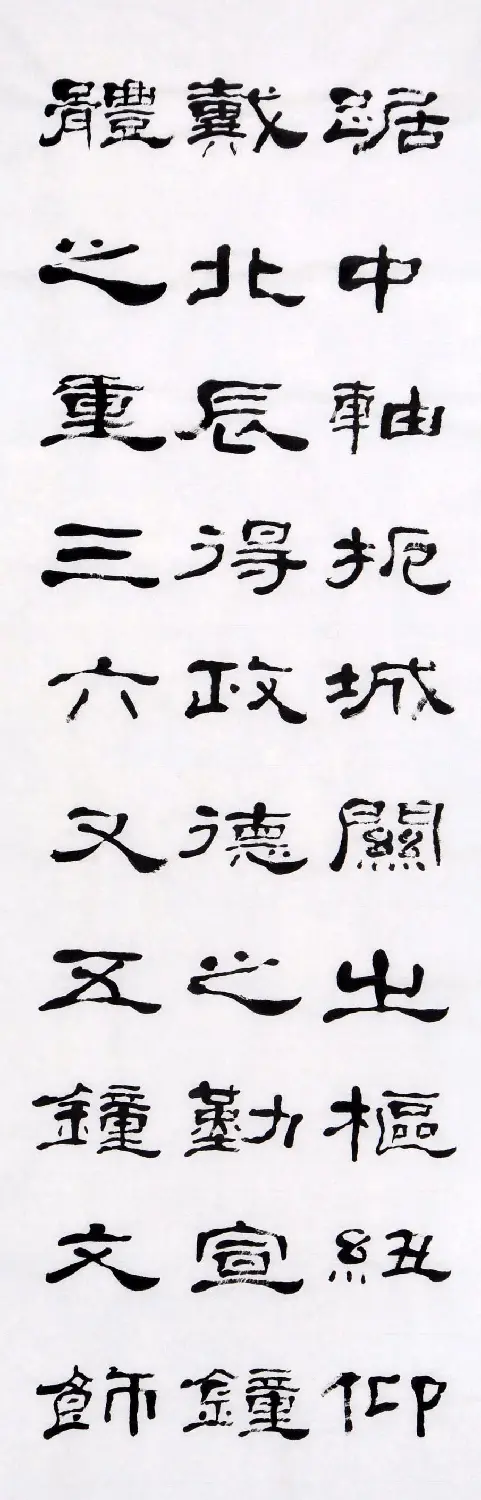 踞中軸扼城關之樞紐仰
戴北辰得政德之勤宣鐘
體之重三六又五鐘文飾